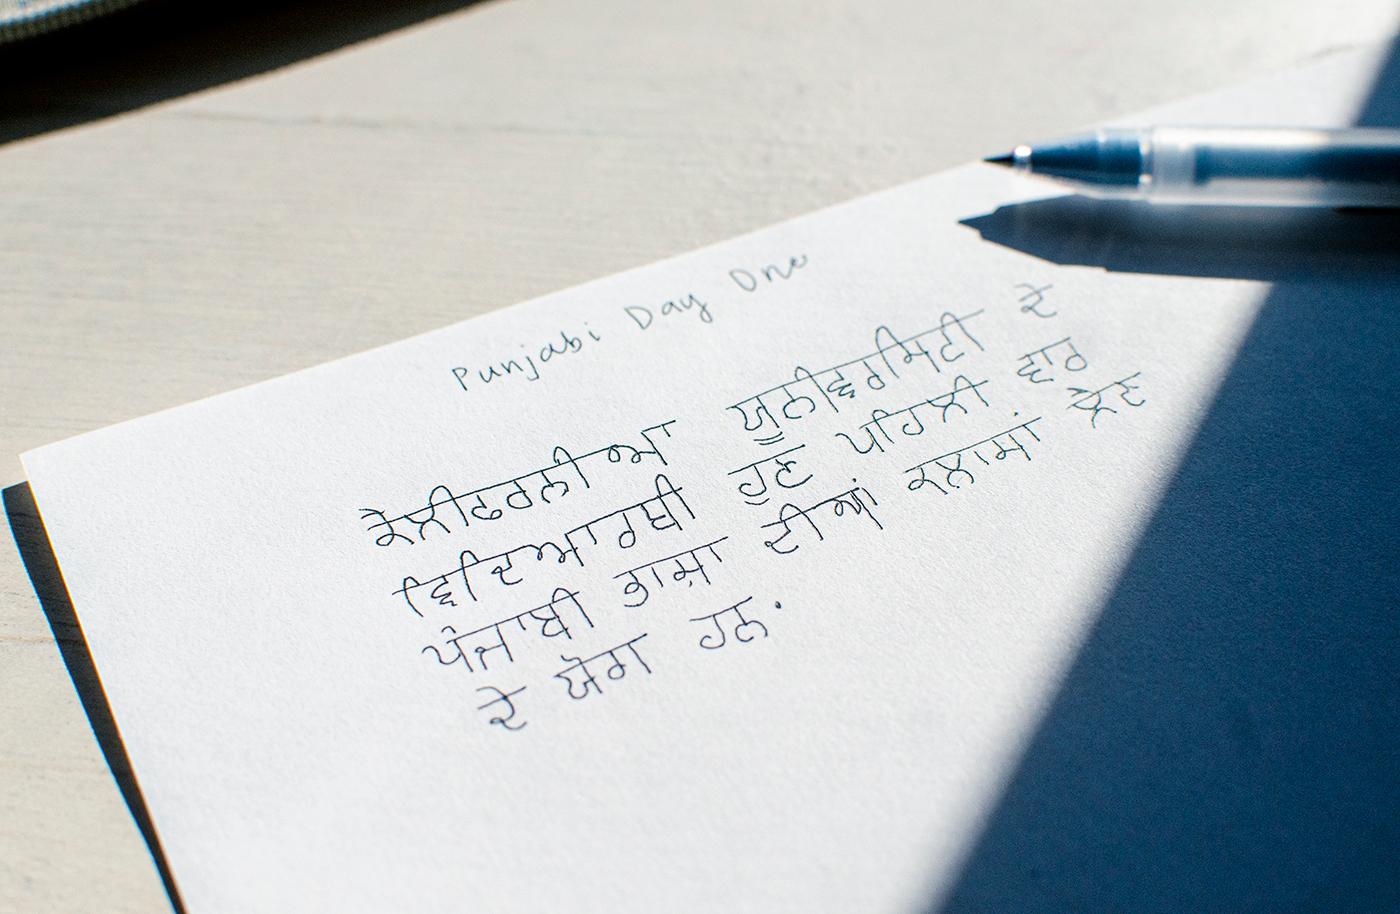 Punjabi Day One
ਕੈਲੀਫਰਨੀਆ ਯੂਨੀਵਰਸਿਟੀ ਦੇ
ਵਿਦਿਆਰਥੀ ਹੁਣ ਪਹਿਲੀ ਵਾਰ
ਪੰਜਾਬੀ ਭਾਸ਼ਾ ਦੀਆਂ ਕਲਾਸਾਂ ਲੈਣ
ਦੇ ਯੋਗ ਹਨ.